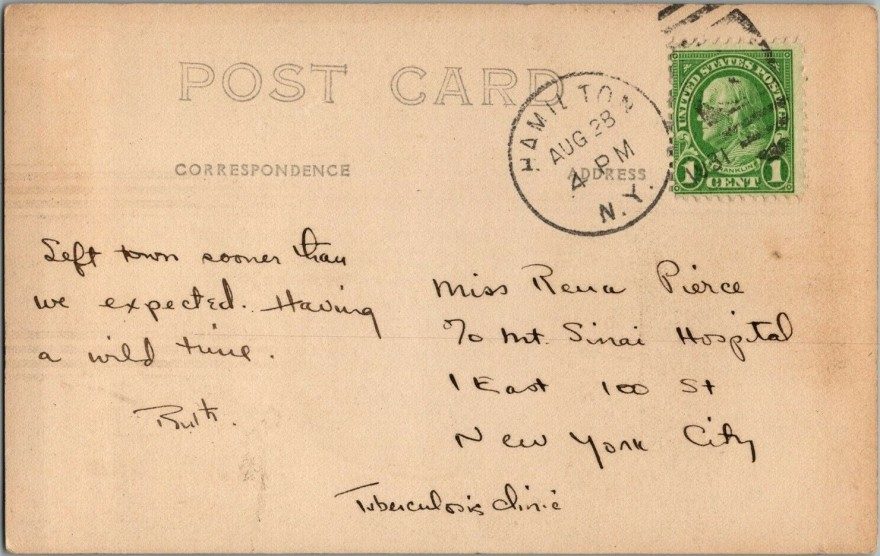 POST CARD
CORRESPONDENCE
ADDRESS
HAMILTON
AUG 28
4 PM
N.Y.
UNITED STATES POSTAGE
FRANKLIN
1 CENT 1
31
Left town sooner than
we expected. Having
a wild time.
Ruth.
Miss Rena Pierce
c/o Mt. Sinai Hospital
1 East 100 St
New York City
Tuberculosis Clinic